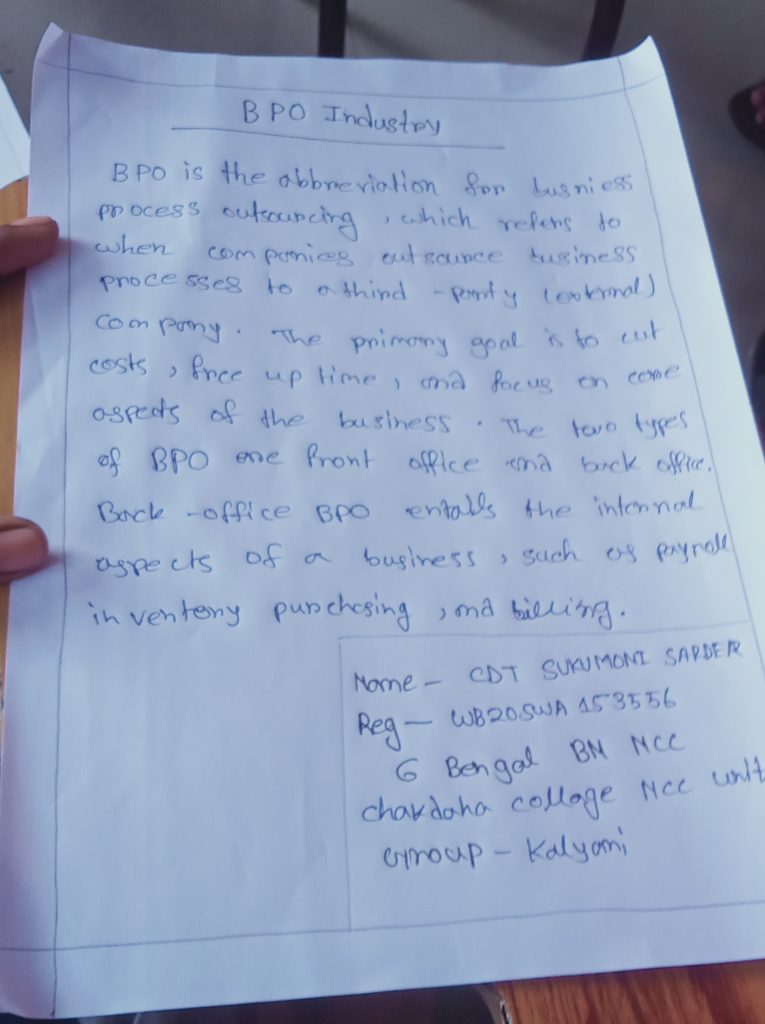 BPO Industry
BPO is the abbreviation for busniess
process outsourcing, which refers to
when companies outsource business
processes to a third-party (external)
company. The primary goal is to cut
costs, free up time, and focus on core
aspects of the business. The two types
of BPO are front office and back office.
Back-office BPO entails the internal
aspects of a business, such as payroll
inventory purchasing, and billing.
Name - CDT SUKUMONI SARDER
Reg - WB20SWA 153556
6 Bengal BN NCC
chakdaha collage NCC unit
Group - Kalyani